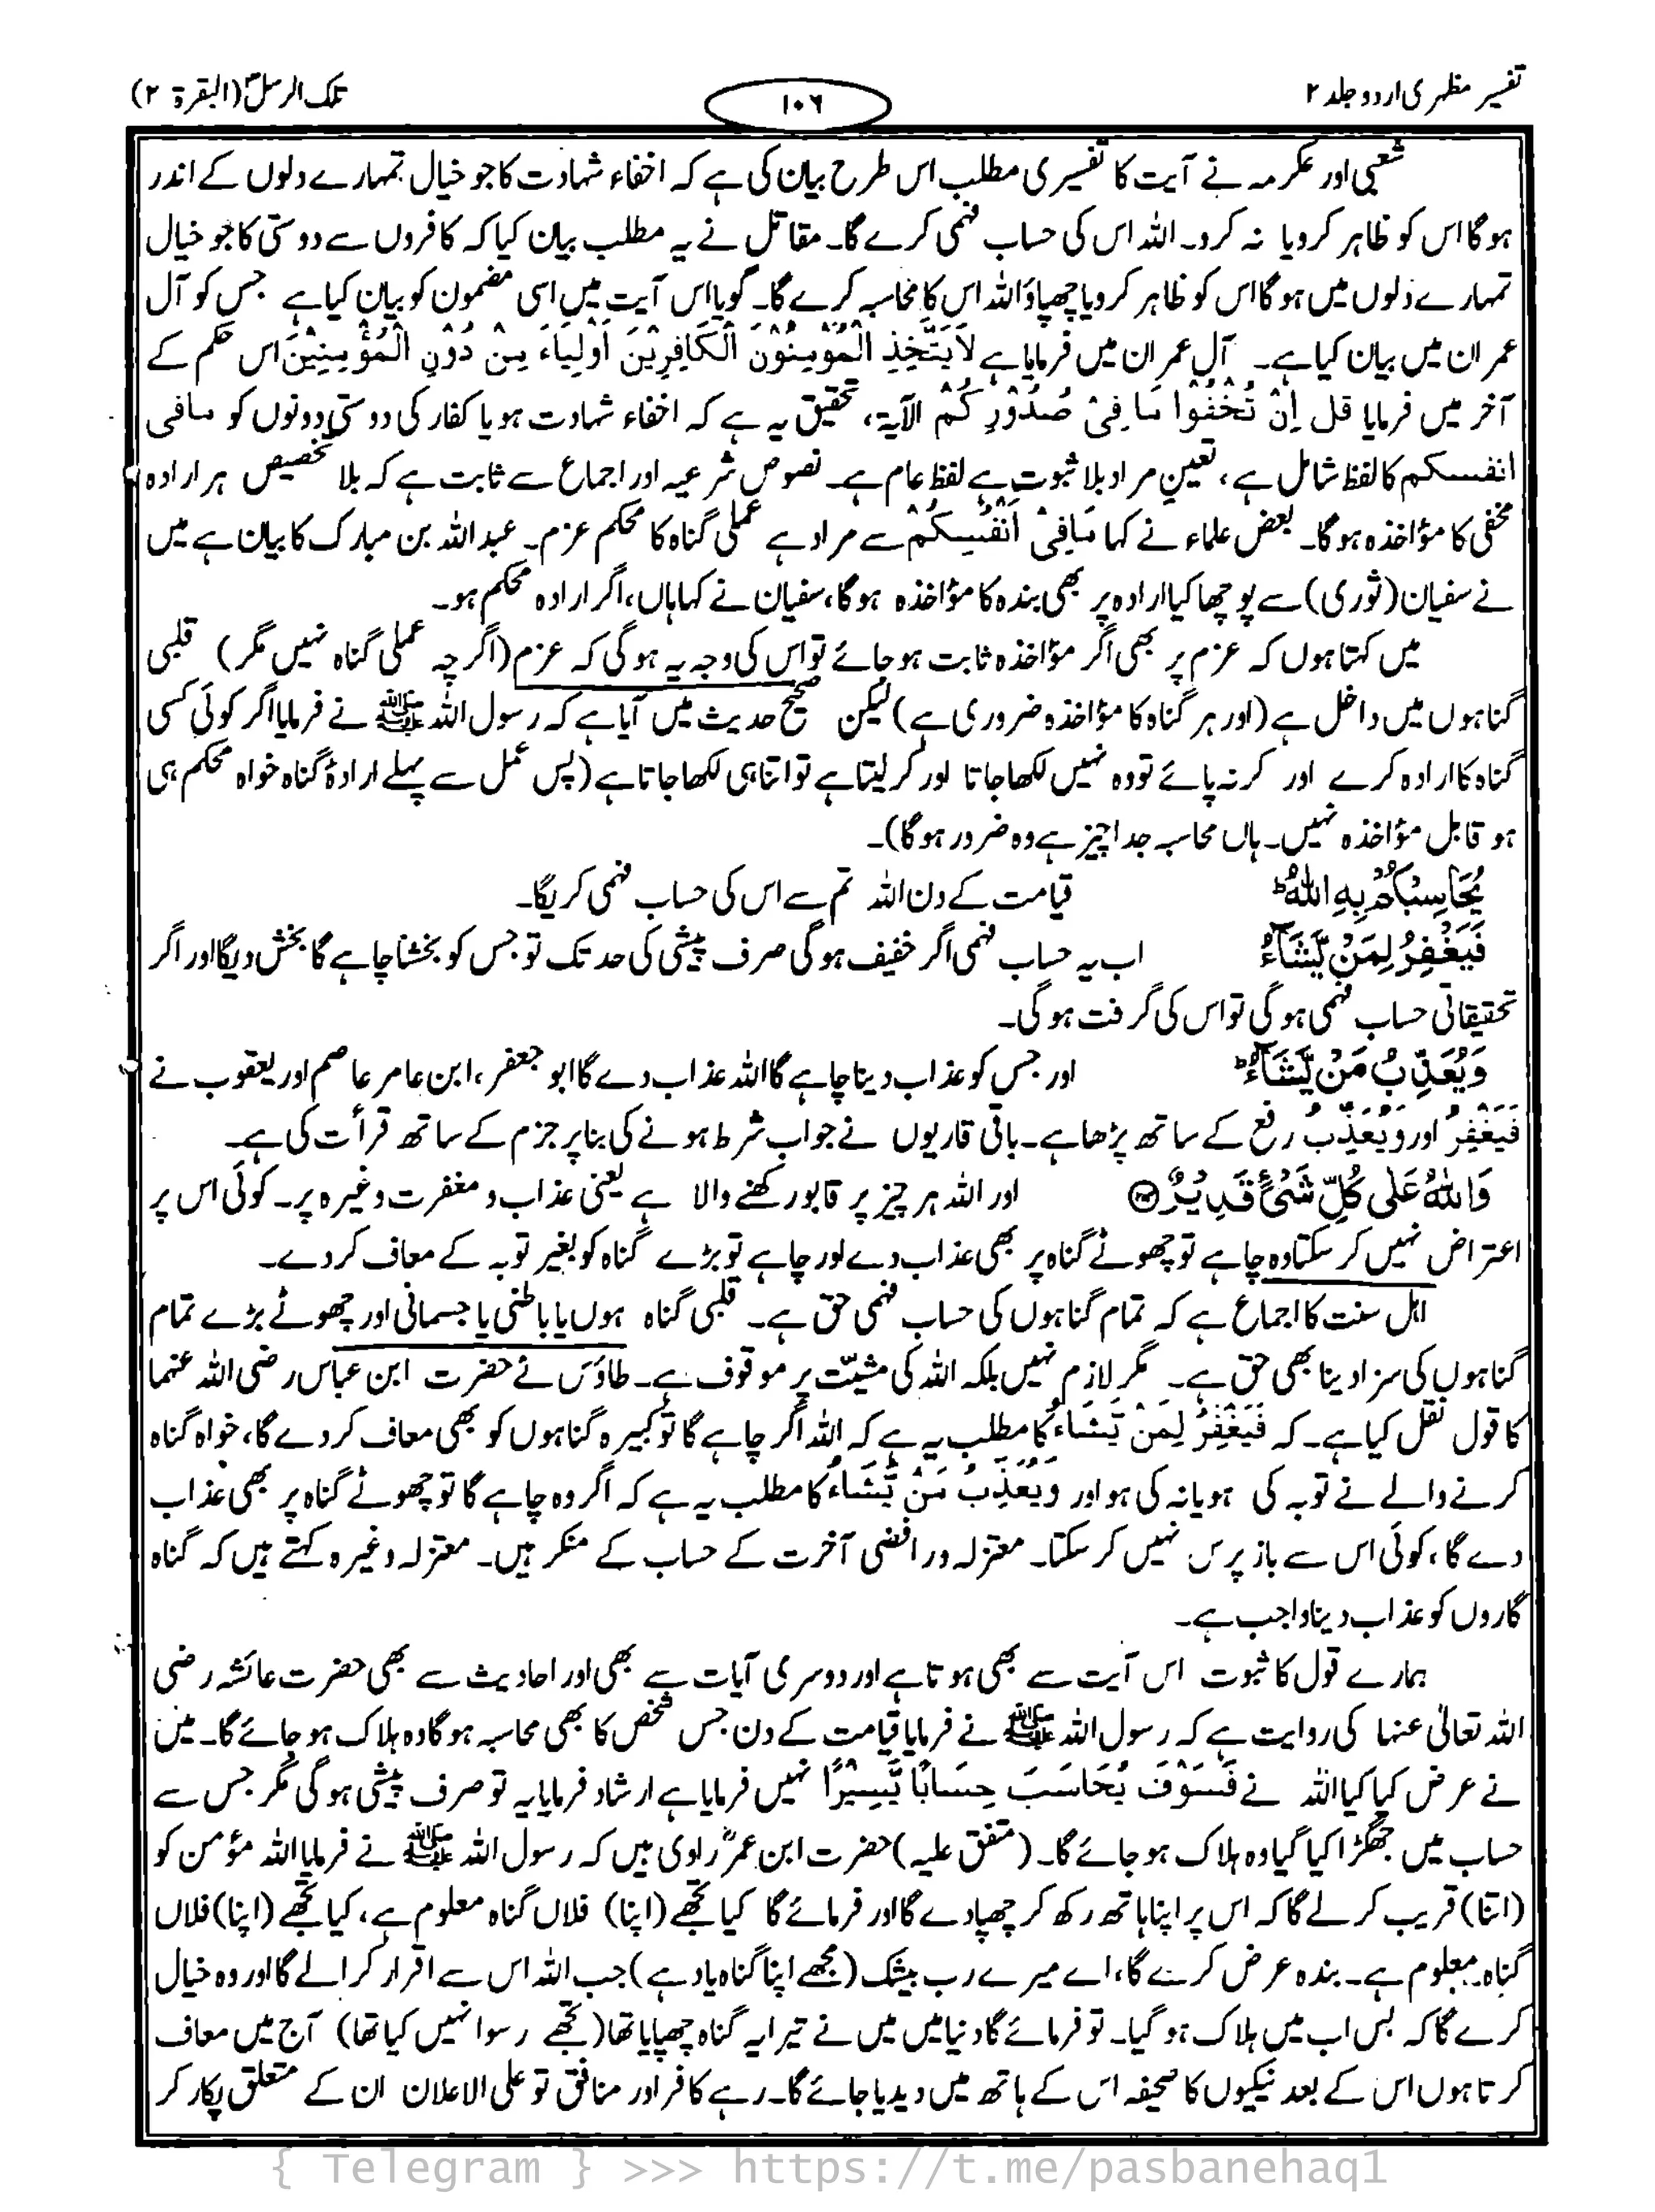 تفسیر مظہری اردو جلد ۲
۱۰۶
تلک الرسل (البقرۃ ۲)
شعبی اور عکرمہ نے آیت کا تفسیری مطلب اس طرح بیان کی ہے کہ اخفاء شہادت کا جو خیال تمہارے دلوں کے اندر
ہوگا اس کو ظاہر کرو یا نہ کرو۔ اللہ اس کی حساب فہمی کرے گا۔ مقاتل نے یہ مطلب بیان کیا کہ کافروں سے دوستی کا جو خیال
تمہارے دلوں میں ہوگا اس کو ظاہر کرو یا چھپاؤ اللہ اس کا محاسبہ کرے گا۔ گویا اس آیت میں اسی مضمون کو بیان کیا ہے جس کو آل
عمران میں بیان کیا ہے۔ آل عمران میں فرمایا ہے لَا یَتَّخِذِ الْمُؤْمِنُوْنَ الْکَافِرِیْنَ اَوْلِیَاءَ مِنْ دُوْنِ الْمُؤْمِنِیْنَ اس حکم کے
آخر میں فرمایا قل اِنْ تُخْفُوا مَا فِیْ صُدُوْرِکُمْ الآیۃ، تحقیق یہ ہے کہ اخفاء شہادت ہو یا کفار کی دوستی دونوں کو مافی
انفسکم کا لفظ شامل ہے، تعیینِ مراد بلا ثبوت ہے لفظ عام ہے۔ نصوص شرعیہ اور اجماع سے ثابت ہے کہ بلا تخصیص ہر ارادہ
مخفی کا مؤاخذہ ہوگا۔ بعض علماء نے کہا مَافِیْ اَنْفُسِکُمْ سے مراد ہے عملی گناہ کا محکم عزم۔ عبداللہ بن مبارک کا بیان ہے میں
نے سفیان (ثوری) سے پوچھا کیا ارادہ پر بھی بندہ کا مؤاخذہ ہوگا، سفیان نے کہا ہاں، اگر ارادہ محکم ہو۔
میں کہتا ہوں کہ عزم پر بھی اگر مؤاخذہ ثابت ہو جائے تو اس کی وجہ یہ ہوگی کہ عزم (اگرچہ عملی گناہ نہیں مگر) قلبی
گناہوں میں داخل ہے (اور ہر گناہ کا مؤاخذہ ضروری ہے) لیکن صحیح حدیث میں آیا ہے کہ رسول اللہ ﷺ نے فرمایا اگر کوئی کسی
گناہ کا ارادہ کرے اور کر نہ پائے تو وہ نہیں لکھا جاتا اور کر لیتا ہے تو اتنا ہی لکھا جاتا ہے (پس عمل سے پہلے ارادۂ گناہ خواہ محکم ہی
ہو قابل مؤاخذہ نہیں۔ ہاں محاسبہ جدا چیز ہے وہ ضرور ہوگا)۔
یُحَاسِبْکُمْ بِہِ اللّٰہُ ؕ قیامت کے دن اللہ تم سے اس کی حساب فہمی کریگا۔
فَیَغْفِرُ لِمَنْ یَّشَآءُ اب یہ حساب فہمی اگر خفیف ہوگی صرف پیشی کی حد تک تو جس کو بخشنا چاہے گا بخش دیگا اور اگر
تحقیقاتی حساب فہمی ہوگی تو اس کی گرفت ہوگی۔
وَیُعَذِّبُ مَنْ یَّشَآءُ ؕ اور جس کو عذاب دینا چاہے گا اللہ عذاب دے گا ابو جعفر، ابن عامر عاصم اور یعقوب نے
فَیَغْفِرُ اور وَیُعَذِّبُ رفع کے ساتھ پڑھا ہے۔ باقی قاریوں نے جواب شرط ہونے کی بنا پر جزم کے ساتھ قرأت کی ہے۔
وَاللّٰہُ عَلٰی کُلِّ شَیْءٍ قَدِیْرٌ اور اللہ ہر چیز پر قابو رکھنے والا ہے یعنی عذاب و مغفرت وغیرہ پر۔ کوئی اس پر
اعتراض نہیں کر سکتا وہ چاہے تو چھوٹے گناہ پر بھی عذاب دے اور چاہے تو بڑے گناہ کو بغیر توبہ کے معاف کر دے۔
اہل سنت کا اجماع ہے کہ تمام گناہوں کی حساب فہمی حق ہے۔ قلبی گناہ ہوں یا باطنی یا جسمانی اور چھوٹے بڑے تمام
گناہوں کی سزا دینا بھی حق ہے۔ مگر لازم نہیں بلکہ اللہ کی مشیّت پر موقوف ہے۔ طاؤس نے حضرت ابن عباس رضی اللہ عنہما
کا قول نقل کیا ہے۔ کہ فَیَغْفِرُ لِمَنْ یَّشَاءُ کا مطلب یہ ہے کہ اللہ اگر چاہے گا تو کبیرہ گناہوں کو بھی معاف کر دے گا، خواہ گناہ
کرنے والے نے توبہ کی ہو یا نہ کی ہو اور وَیُعَذِّبُ مَنْ یَّشَاءُ کا مطلب یہ ہے کہ اگر وہ چاہے گا تو چھوٹے گناہ پر بھی عذاب
دے گا، کوئی اس سے باز پرس نہیں کر سکتا۔ معتزلہ ور افضی آخرت کے حساب کے منکر ہیں۔ معتزلہ وغیرہ کہتے ہیں کہ گناہ
گاروں کو عذاب دینا واجب ہے۔
ہمارے قول کا ثبوت اس آیت سے بھی ہوتا ہے اور دوسری آیات سے بھی اور احادیث سے بھی حضرت عائشہ رضی
اللہ تعالیٰ عنہا کی روایت ہے کہ رسول اللہ ﷺ نے فرمایا قیامت کے دن جس شخص کا بھی محاسبہ ہوگا وہ ہلاک ہو جائے گا۔ میں
نے عرض کیا کیا اللہ نے فَسَوْفَ یُحَاسَبُ حِسَابًا یَّسِیْرًا نہیں فرمایا ہے ارشاد فرمایا یہ تو صرف پیشی ہوگی مگر جس سے
حساب میں جھگڑا کیا گیا وہ ہلاک ہو جائے گا۔ (متفق علیہ) حضرت ابن عمرؓ راوی ہیں کہ رسول اللہ ﷺ نے فرمایا اللہ مؤمن کو
(اتنا) قریب کر لے گا کہ اس پر اپنا ہاتھ رکھ کر چھپا دے گا اور فرمائے گا کیا تجھے (اپنا) فلاں گناہ معلوم ہے، کیا تجھے (اپنا) فلاں
گناہ معلوم ہے۔ بندہ عرض کرے گا، اے میرے رب بیشک (مجھے اپنا گناہ یاد ہے) جب اللہ اس سے اقرار کرا لے گا اور وہ خیال
کرے گا کہ بس اب میں ہلاک ہو گیا۔ تو فرمائے گا دنیا میں میں نے تیرا یہ گناہ چھپایا تھا (تجھے رسوا نہیں کیا تھا) آج میں معاف
کرتا ہوں اس کے بعد نیکیوں کا صحیفہ اس کے ہاتھ میں دیدیا جائے گا۔ رہے کافر اور منافق تو علی الاعلان ان کے متعلق پکار کر
{ Telegram } >>> https://t.me/pasbanehaq1